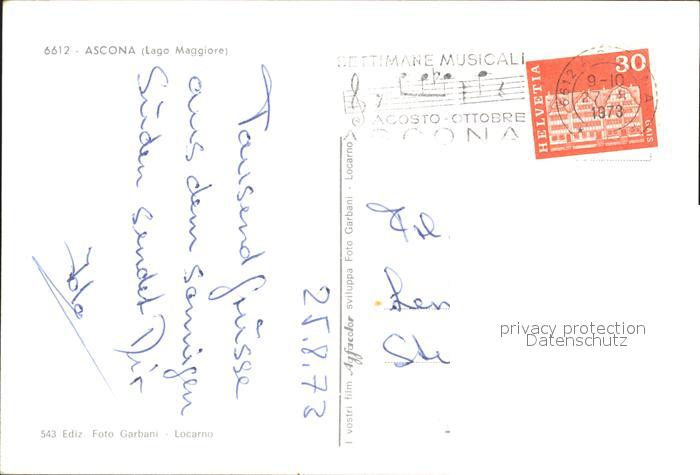 6612 - ASCONA (Lago Maggiore)
SETTIMANE MUSICALI
AGOSTO - OTTOBRE
ASCONA
6612
9-10
1973
HELVETIA
30
GAIS
25.8.73
Tausend Grüsse
aus dem sonnigen
Süden sendet Dir
Ida
I vostri film Agfacolor sviluppa Foto Garbani - Locarno
privacy protection
Datenschutz
543 Ediz. Foto Garbani - Locarno